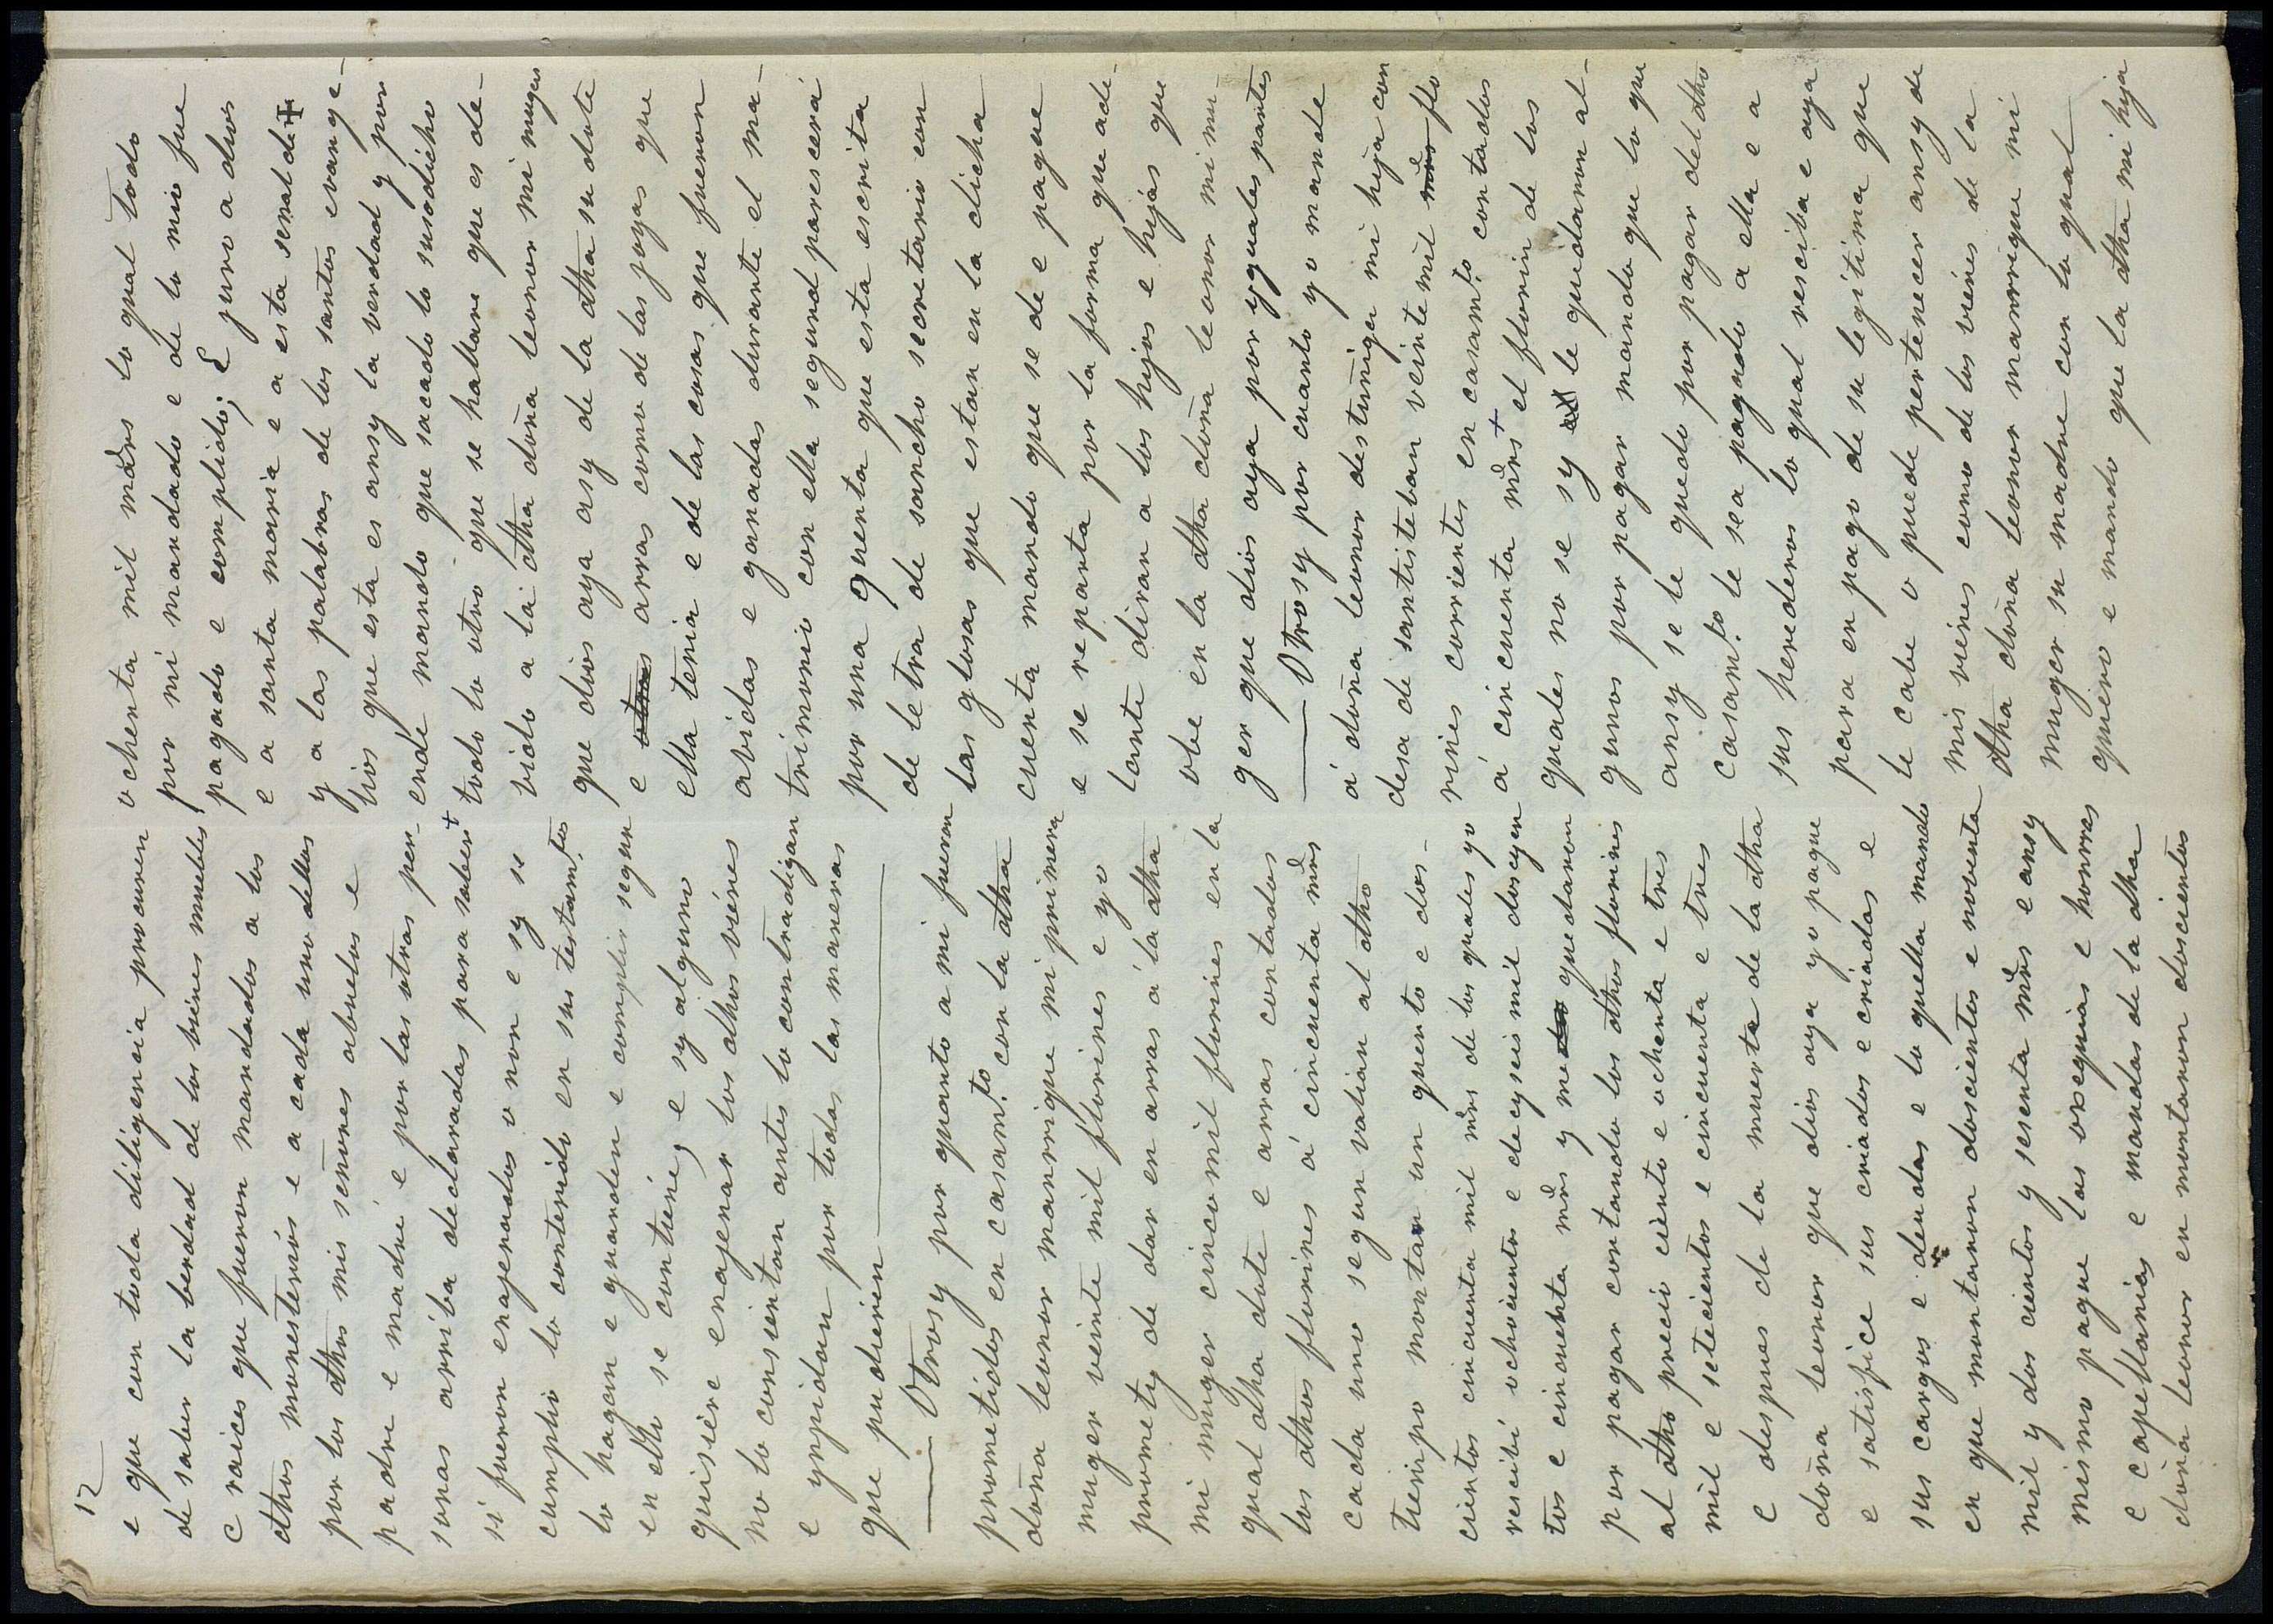 12
e que con toda diligencia procuren
de saber la berdad de los bienes muebles
e raices que fueron mandados a los
dthos monesterios e a cada uno dellos
por los dthos mis señores abuelos e
padre e madre e por las otras per-
sonas arriba declaradas para saber +
si fueron enagenados o non e sy se
cumplio lo contenido en sus testam.tos
lo hagan e guarden e complir segun
en ello se contiene, e sy alguno
quisiere enajenar los dthos vienes
no lo consientan antes lo contradigan
e ynpidan por todas las maneras
que pudieren
Otrosy por quanto a mi fueron
prometidos en casam.to con la dtha
doña leonor manrrique mi primera
muger veinte mil florines e yo
promety de dar en arras á la dtha
mi muger cinco mil florines en la
qual dtha dote e arras contados
los dthos florines á cincuenta mrs
cada uno segun valian al dtho
tienpo montan un quento e dos-
cientos cincuenta mil mrs de los quales yo
rescibi ochocientos e decyseis mil doscyen
tos e cincuenta mrs y me quedaron
por pagar contando los dthos florines
al dtho precio ciento e ochenta e tres
mil e setecientos e cincuenta e tres
e despues de la muerte de la dtha
doña leonor que dios aya yo pague
e satisfice sus criados e criadas e
sus cargos e deudas e lo quella mando
en que montaron doscientos e noventa
mil y dos cientos y sesenta mrs e ansy
mismo pague las osequias e honrras
e capellanias e mandas de la dha
doña leonor en montaron doscientos
ochenta mil mars lo qual todo
por mi mandado e de lo mio fue
pagado e complido; E juro a dios
e a santa maria e a esta señal de +
y a las palabras de los santos evange-
lios que esta es ansy la verdad y por
ende mando que sacado lo susodicho
todo lo otro que se hallare que es de-
vido a la dtha doña leonor mi muger
que dios aya asy de la dtha su dote
e otras arras como de las joyas que
ella tenia e de las cosas que fueron
avidas e ganadas durante el ma-
trimonio con ella segund parescerá
por una quenta que esta escrita
de letra de sancho secretario con
las glosas que estan en la dicha
cuenta mando que se de e pague
e se reparta por la forma que ade-
lante diran a los hijos e hijas que
obe en la dtha doña leonor mi mu-
ger que dios aya por yguales partes
Otrosy por cuanto yo mande
á doña leonor destuñiga mi hija con
desa de santisteban veinte mil mrs flo
rines corrientes en casam.to contados
á cincuenta mrs + el florin de los
quales no se sy le quedaron al-
gunos por pagar mando que lo que
ansy se le quedo por pagar del dtho
casam.to le sea pagado a ella e a
sus herederos lo qual resciba e aya
para en pago de su legitima que
le cabe o puede pertenecer ansy de
mis vienes como de los vienes de la
dtha doña leonor manrrique mi
muger su madre con lo qual
quiero e mando que la dtha mi hija